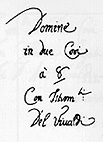 Domine
in due Cori
à 8
Con Istrom.ti
Del Vivaldi